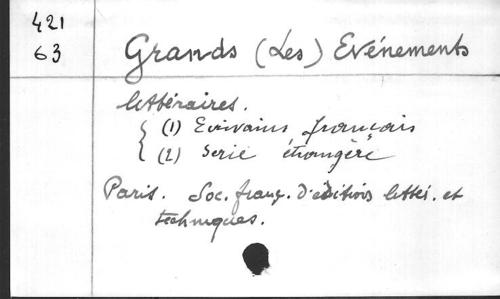 421
63
Grands (Les) Evénements
littéraires.
(1) Ecrivains français
(2) Serie étrangère
Paris. Soc. franç. d'éditions littér. et
techniques.